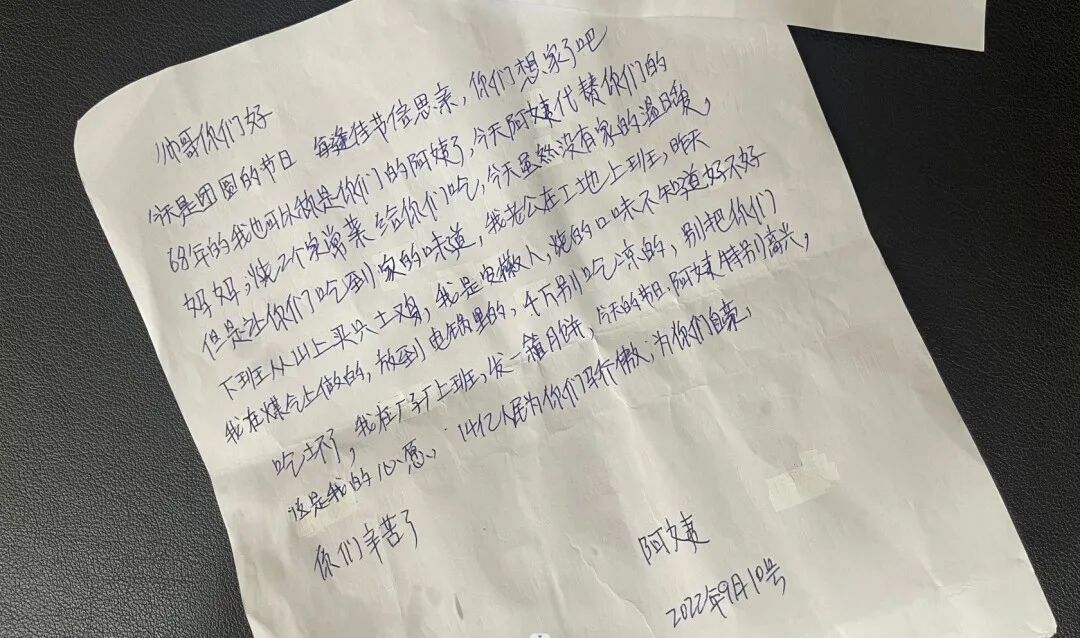 帅哥你们好
今天是团圆的节日 每逢佳节倍思亲,你们想家了吧
68年的我也可以做是你们的阿姨了,今天阿姨代替你们的
妈妈,烧2个家常菜给你们吃,今天虽然没有家的温暖,
但是让你们吃到家的味道,我老公在工地上班,昨天
下班从山上买只土鸡,我是安徽人,烧的口味不知道好不好
我在煤气上做的,放到电锅里的,千万别吃凉的,别把你们
吃坏了,我在厂子上班,发一箱月饼,今天的节日,阿姨特别高兴,
这是我的心愿,14亿人民为你们骄傲,为你们自豪,
你们辛苦了
阿姨
2022年9月10号